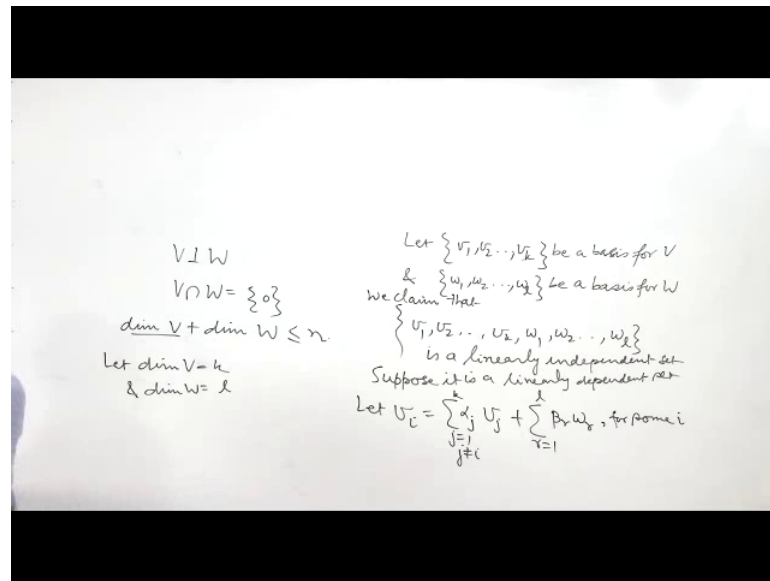 V ⊥ W
V ∩ W = {0}
dim V + dim W ≤ n.
Let dim V = k
& dim W = l
Let {v₁, v₂ .., vₖ} be a basis for V
& {w₁, w₂ .., wₗ} be a basis for W
we claim that
{v₁, v₂ .., vₖ, w₁, w₂ .., wₗ}
is a linearly independent set
Suppose it is a linearly dependent set
Let vᵢ = ∑_{j=1, j≠i}^{k} αⱼ vⱼ + ∑_{r=1}^{l} βᵣ wᵣ, for some i